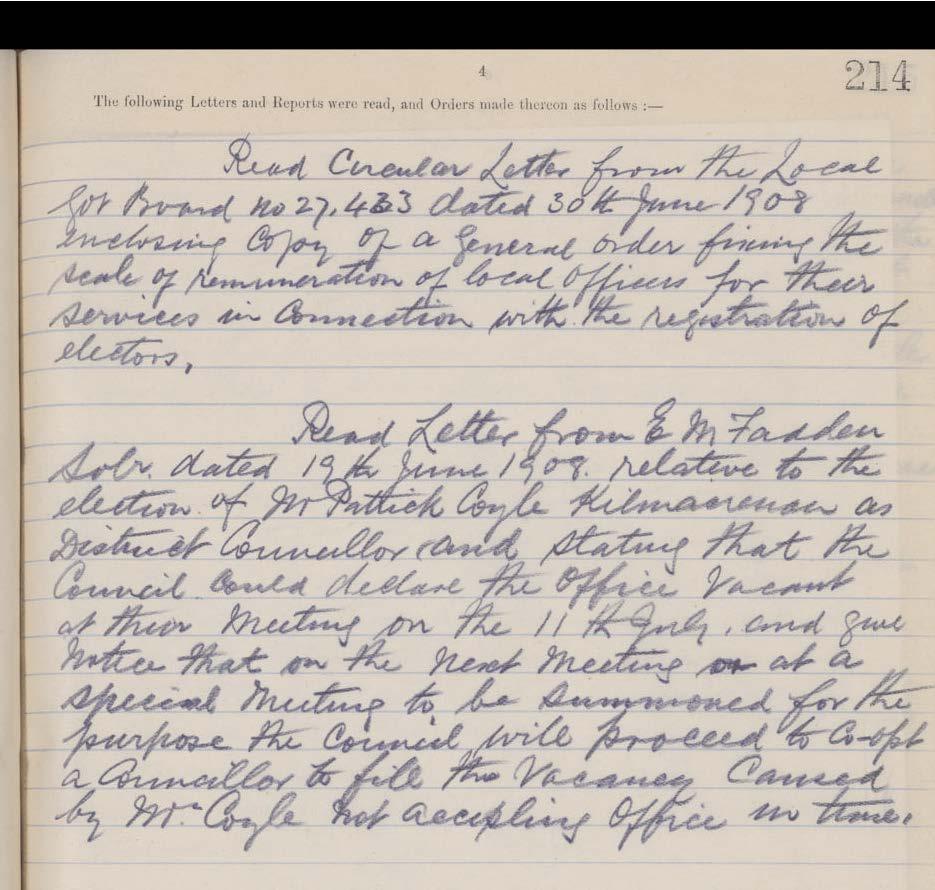 4
214
The following Letters and Reports were read, and Orders made thereon as follows :—
Read Circular Letter from the Local
Gov Board no 27,433 dated 30th June 1908
enclosing Copy of a General order fixing the
scale of remuneration of local Officers for their
services in Connection with the registration of
electors,
Read Letter from E McFadden
Solr. dated 19th June 1908. relative to the
election of Mr Patrick Coyle Kilmacrenan as
District Councillor and stating that the
Council Could declare the Office Vacant
at their Meeting on the 11th July, and give
Notice that on the Next Meeting or at a
special Meeting to be summoned for the
purpose the Council will proceed to Co-opt
a Councillor to fill the Vacancy Caused
by Mr. Coyle Not accepting Office in time.